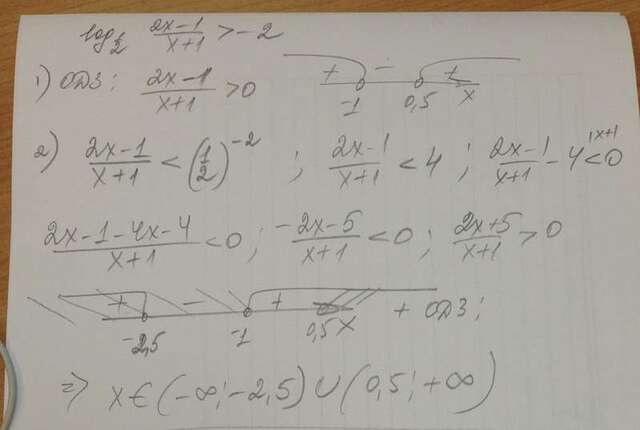 log½ (2x-1)/(x+1) > -2
1) ОДЗ: (2x-1)/(x+1) > 0
+ - + x
-1 0,5
2) (2x-1)/(x+1) < (1/2)^-2 ; (2x-1)/(x+1) < 4 ; (2x-1)/(x+1) - 4^{\x+1} < 0
(2x-1-4x-4)/(x+1) < 0 ; (-2x-5)/(x+1) < 0 ; (2x+5)/(x+1) > 0
+ - + + ОДЗ;
-2,5 -1 0,5 x
=> x∈(-∞;-2,5)∪(0,5;+∞)